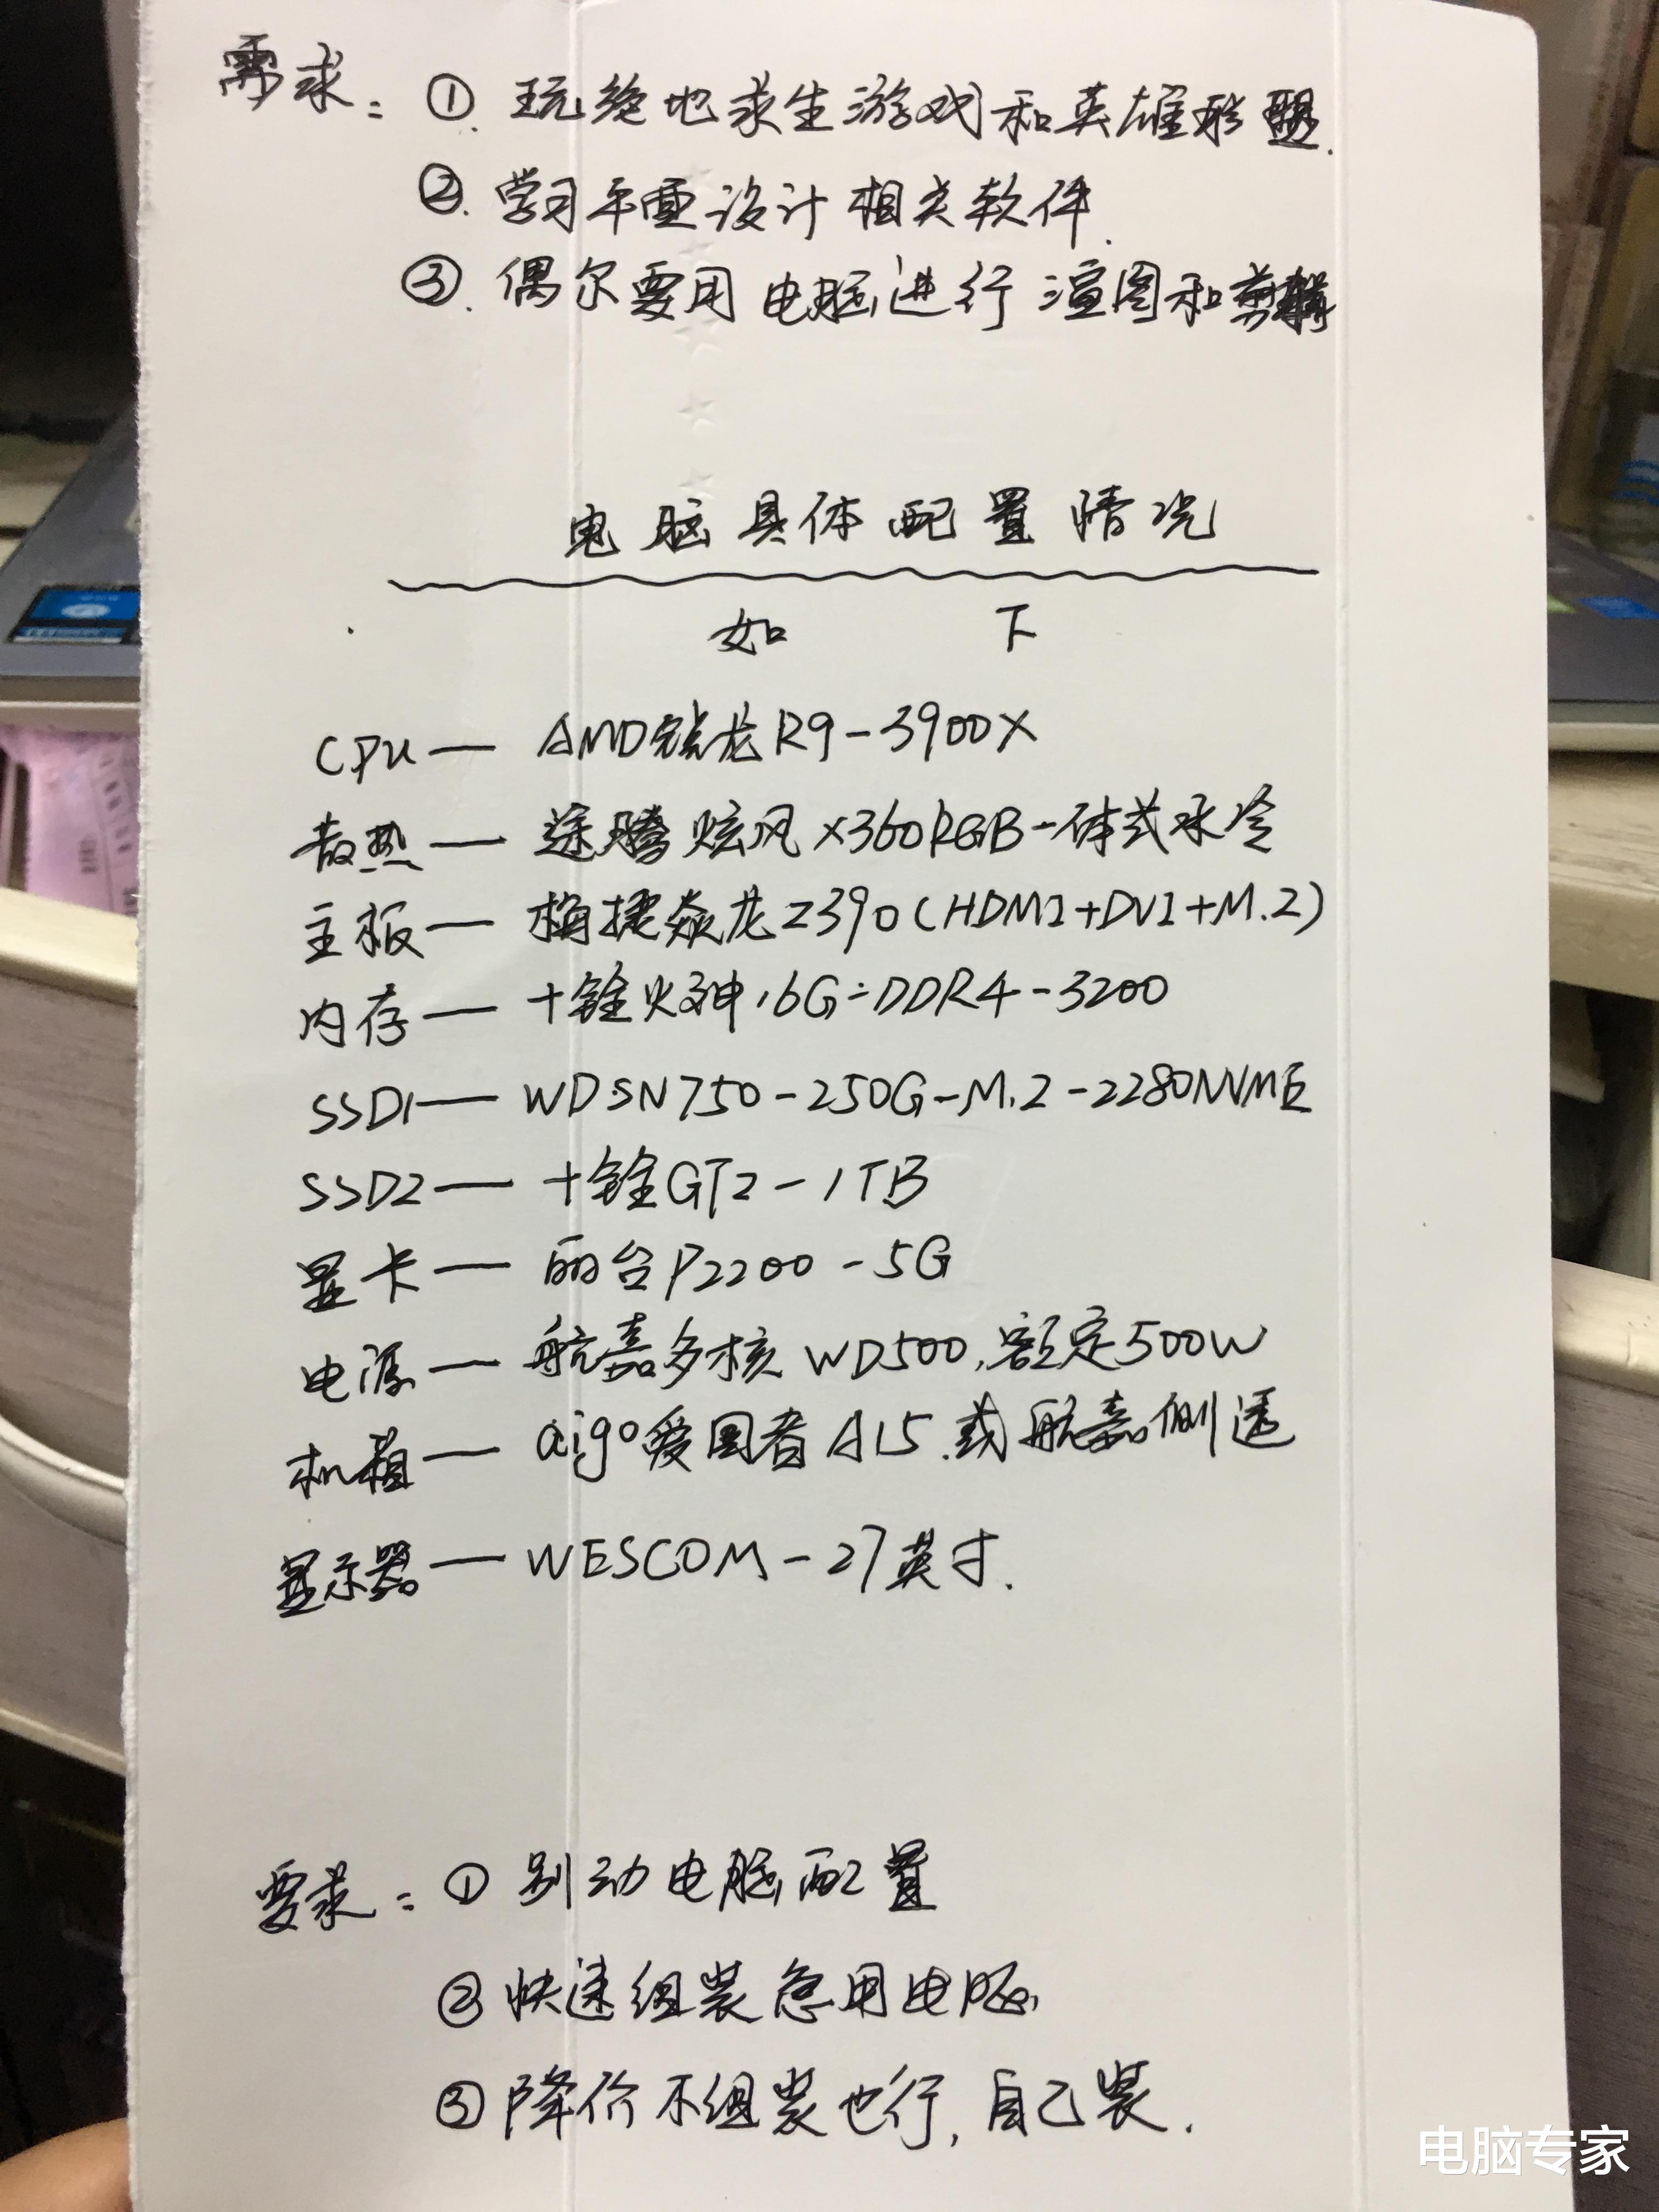 需求：① 玩绝地求生游戏和英雄联盟.
②. 学习平面设计相关软件.
③. 偶尔要用电脑进行渲图和剪辑
电脑具体配置情况
如 下
CPU — AMD锐龙R9-3900X
散热 — 途腾炫风X360RGB一体式水冷
主板 — 梅捷焱龙Z390(HDMI+DVI+M.2)
内存 — 十铨火神16G=DDR4-3200
SSD1 — WDSN750-250G-M.2-2280NVME
SSD2 — 十铨GT2-1TB
显卡 — 丽台P2200-5G
电源 — 航嘉多核WD500,额定500W
机箱 — aigo爱国者A15.或航嘉侧透
显示器 — WESCOM-27英寸.
要求：① 别动电脑配置
② 快速组装急用电脑
③ 降价不组装也行, 自己装.
电脑专家